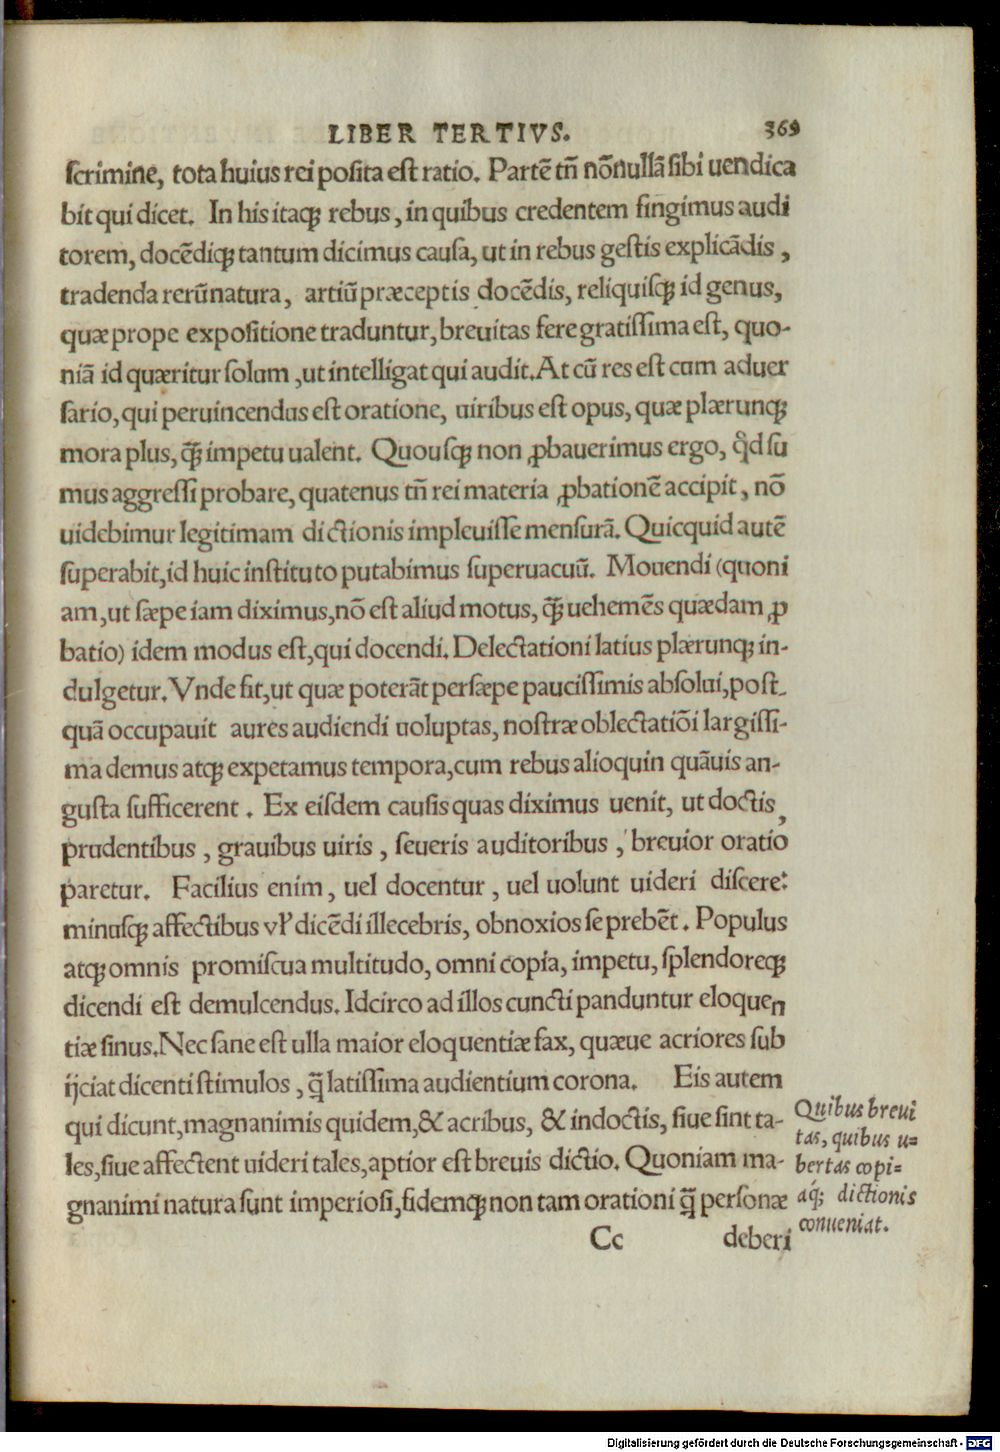 LIBER TERTIVS. 369
ſcrimine, tota huius rei poſita eſt ratio. Partē tñ nōnullā ſibi uendica
bit qui dicet. In his itaqꝫ rebus, in quibus credentem fingimus audi
torem, docēdiqꝫ tantum dicimus cauſa, ut in rebus geſtis explicādis,
tradenda rerū natura, artiū præceptis docēdis, reliquiſqꝫ id genus,
quæ prope expoſitione traduntur, breuitas fere gratiſſima eſt, quo-
niā id quæritur ſolum, ut intelligat qui audit. At cū res eſt cum aduer
ſario, qui peruincendus eſt oratione, uiribus eſt opus, quæ plærunqꝫ
mora plus, q̄ꝫ impetu ualent. Quouſqꝫ non ꝓbauerimus ergo, qͥd ſu
mus aggreſſi probare, quatenus tñ rei materia ꝓbationē accipit, nō
uidebimur legitimam dictionis impleuiſſe menſurā. Quicquid autē
ſuperabit, id huic inſtituto putabimus ſuperuacuū. Mouendi (quoni
am, ut ſæpe iam diximus, nō eſt aliud motus, q̄ꝫ uehemēs quædam ꝓ
batio) idem modus eſt, qui docendi. Delectationi latius plærunqꝫ in-
dulgetur. Vnde fit, ut quæ poterāt perſæpe pauciſſimis abſolui, poſt-
quā occupauit aures audiendi uoluptas, noſtræ oblectatiōi largiſſi-
ma demus atqꝫ expetamus tempora, cum rebus alioquin quāuis an-
guſta ſufficerent. Ex eiſdem cauſis quas diximus uenit, ut doctis,
prudentibus, grauibus uiris, ſeueris auditoribus, breuior oratio
paretur. Facilius enim, uel docentur, uel uolunt uideri diſcere:
minuſqꝫ affectibus vł dicēdi illecebris, obnoxios ſe prebēt. Populus
atqꝫ omnis promiſcua multitudo, omni copia, impetu, ſplendoreqꝫ
dicendi eſt demulcendus. Idcirco ad illos cuncti panduntur eloquen
tiæ ſinus. Nec ſane eſt ulla maior eloquentiæ fax, quæue acriores ſub
ijciat dicenti ſtimulos, q̄ latiſſima audientium corona. Eis autem
qui dicunt, magnanimis quidem, & acribus, & indoctis, ſiue ſint ta-
les, ſiue affectent uideri tales, aptior eſt breuis dictio. Quoniam ma-
gnanimi natura ſunt imperioſi, fidemqꝫ non tam orationi q̄ perſonæ
Cc deberi
Quibus breui
tas, quibus u=
bertas copi=
aq́ꝫ dictionis
conueniat.
Digitalisierung gefördert durch die Deutsche Forschungsgemeinschaft - DFG